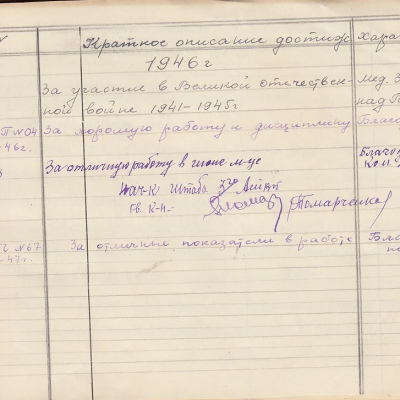 Краткое описание достиж Хара
1946 г
За участие в Великой отечествен- Мед. З
ной войне 1941-1945г над Г
П №04 За хорошую работу и дисциплину Благо
-46г.
За отличную работу в июне м-це Благо
Нач-к штаба
Гв. К-н. Помарченко
№67 За отличные показатели в работе Бла
-47г.